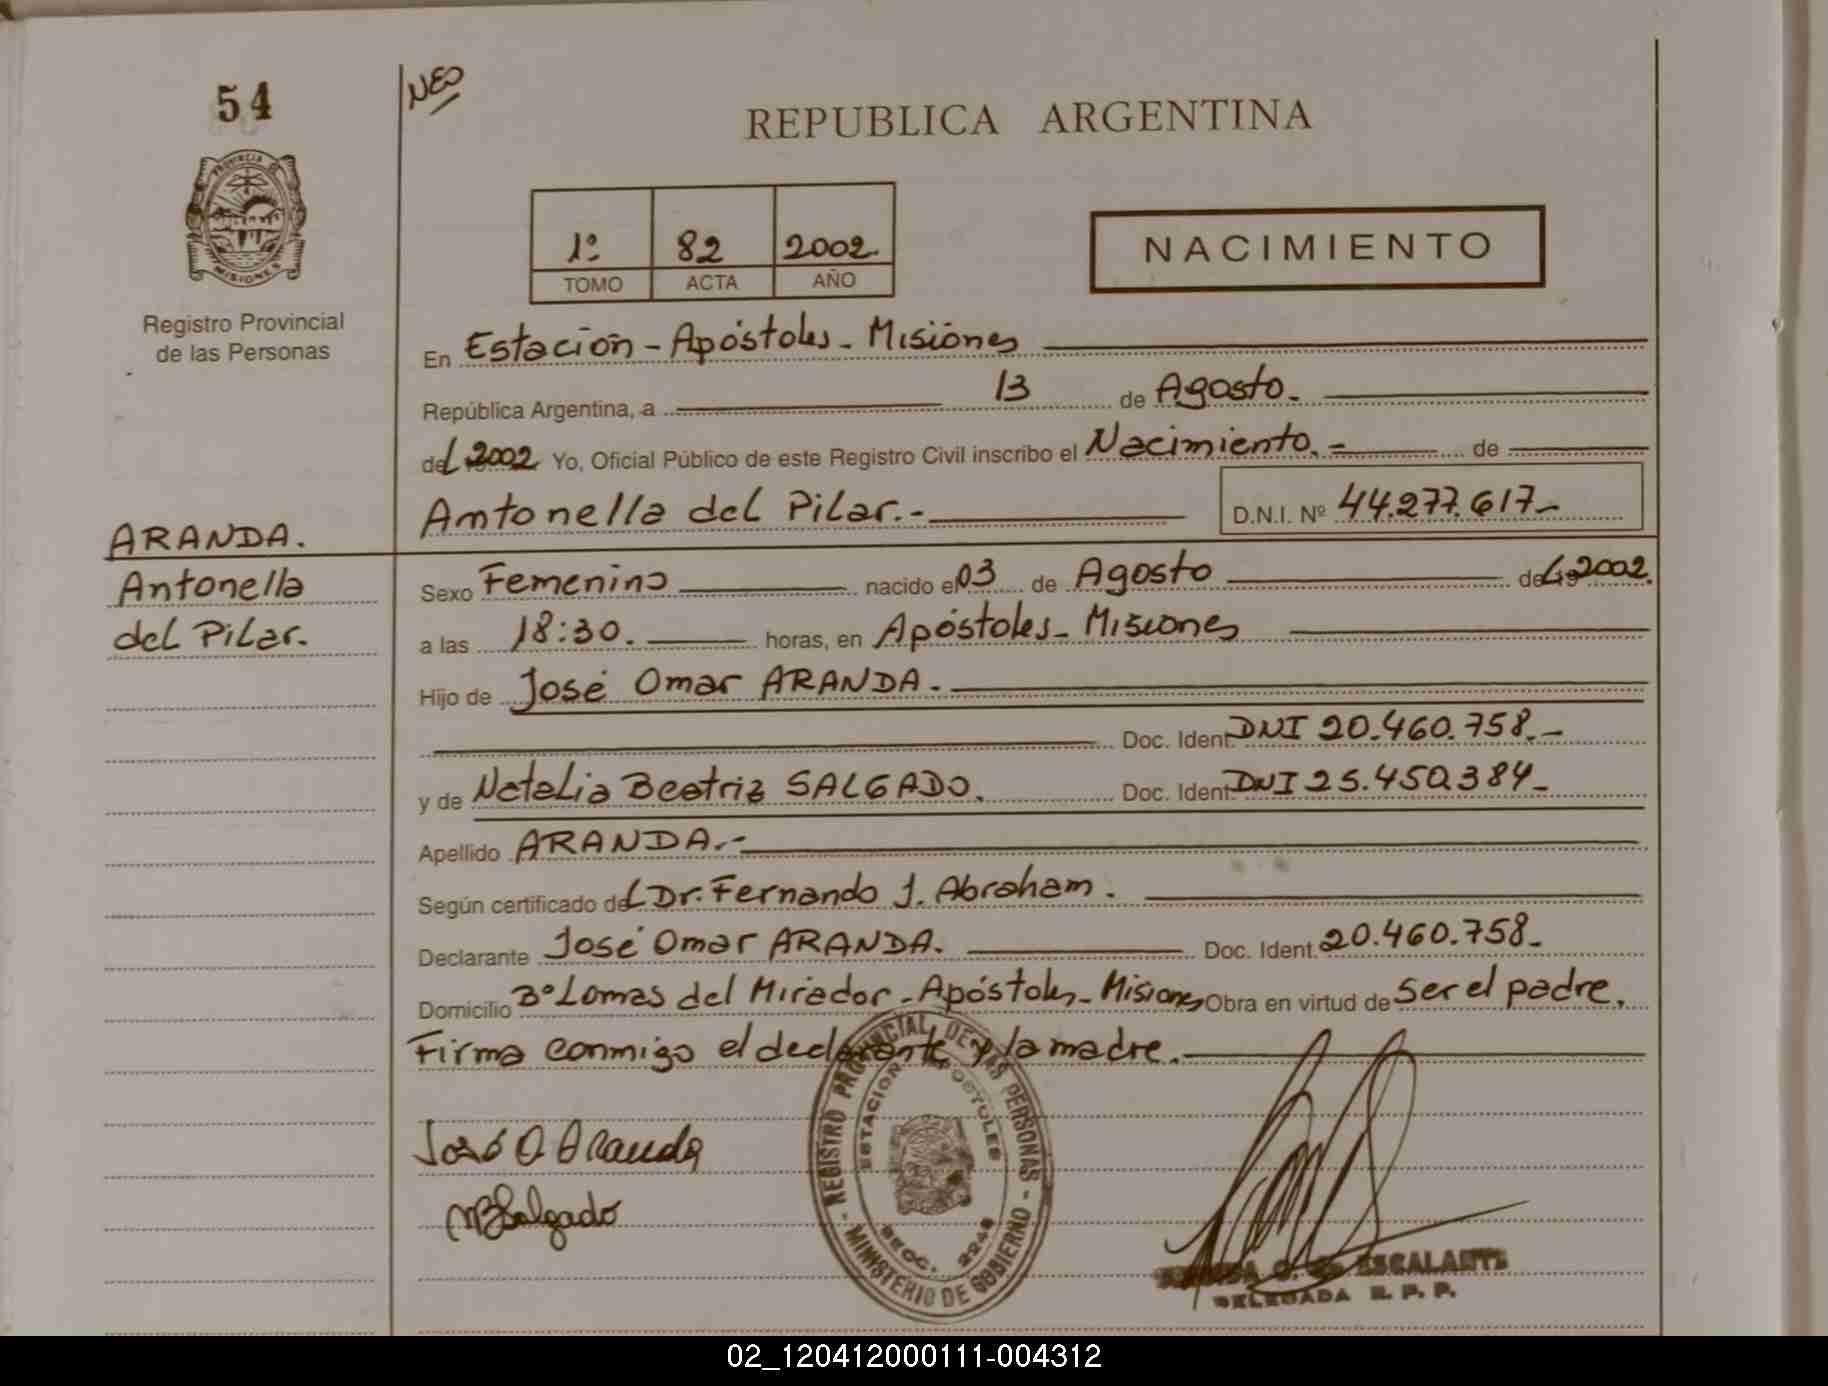 54
NEO
REPUBLICA ARGENTINA
PROVINCIA DE
MISIONES
1º 82 2002.
TOMO ACTA AÑO
NACIMIENTO
Registro Provincial
de las Personas
En Estación - Apóstoles - Misiónes
República Argentina, a 13 de Agosto.-
del 2002 Yo, Oficial Público de este Registro Civil inscribo el Nacimiento.- de
Antonella del Pilar.- D.N.I. Nº 44.277.617-
ARANDA.
Antonella
del Pilar.
Sexo Femenino nacido el 03 de Agosto del 2002.
a las 18:30. horas, en Apóstoles - Misiones
Hijo de José Omar ARANDA.-
Doc. Ident. DNI 20.460.758.-
y de Natalia Beatriz SALGADO. Doc. Ident. DNI 25.450.384-
Apellido ARANDA.-
Según certificado del Dr. Fernando J. Abraham.
Declarante José Omar ARANDA. Doc. Ident. 20.460.758-
Domicilio Bº Lomas del Mirador - Apóstoles - Misiones Obra en virtud de ser el padre.
Firma conmigo el declarante y la madre.-
José O Aranda
NBSalgado
REGISTRO PROVINCIAL DE LAS PERSONAS
- MINISTERIO DE GOBIERNO -
ESTACION APOSTOLES
SECC. 2248
ESCALANTE
DELEGADA R. P. P.
02_120412000111-004312